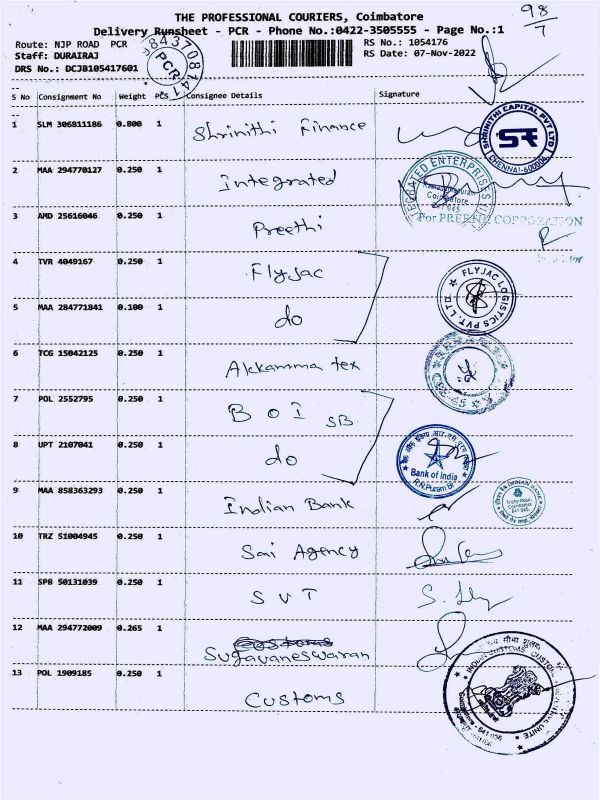 98/7
THE PROFESSIONAL COURIERS, Coimbatore
Delivery Runsheet - PCR - Phone No.:0422-3505555 - Page No.:1
Route: NJP ROAD PCR
RS No.: 1054176
Staff: DURAIRAJ
RS Date: 07-Nov-2022
DRS No.: DCJB105417601
843708141
PCR
S No Consignment No Weight PCS Consignee Details Signature
1 SLM 306811186 0.800 1 Shrinithi Finance
SHRINITHI CAPITAL PVT LTD
SF
CHENNAI-600004
2 MAA 294770127 0.250 1 Integrated
ENTERPRISES
Coimbatore
641 045
3 AMD 25616046 0.250 1 Preethi
For PREETHI CORPORATION
4 TVR 4049167 0.250 1 Flyjac
FLYJAC LOGISTICS PVT. LTD.
5 MAA 284771841 0.100 1 do
6 TCG 15042125 0.250 1 Akkamma tex
7 POL 2552795 0.250 1 B O I SB
8 UPT 2107041 0.250 1 do
Bank of India
R.N.Puram Br
9 MAA 858363293 0.250 1 Indian Bank
INDIAN BANK
Trichy Road,
Coimbatore
641 045.
10 TRZ 51004945 0.250 1 Sai Agency
11 SPB 50131039 0.250 1 S V T
12 MAA 294772009 0.265 1 Sugavaneswaran
13 POL 1909185 0.250 1 Customs
INDIAN CUSTOMS
641 036